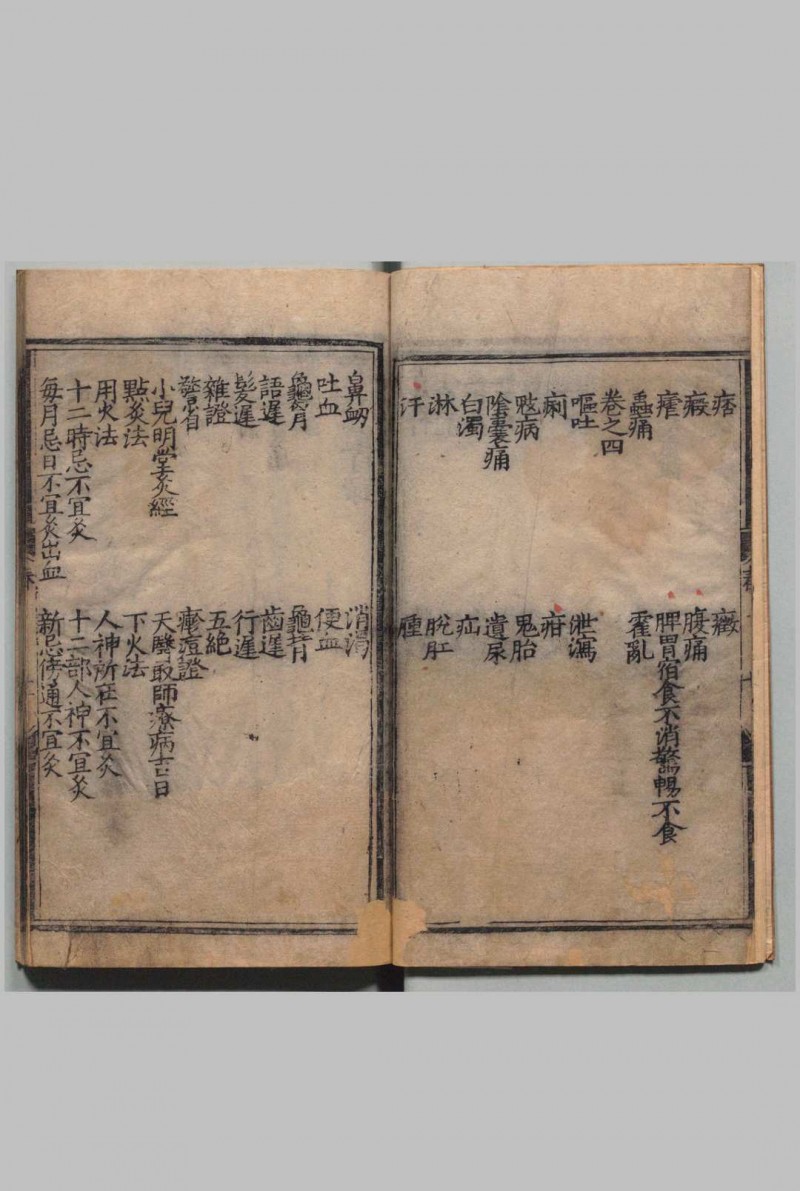 痞 癥
癥 腹痛
瘧 脾胃宿食不消驚暢不食
蟲痛 霍亂
卷之四
嘔吐 泄瀉
痢 疳
䀏病 鬼胎
陰囊痛 遺尿
白濁 疝
淋 脫肛
汗 腫
鼻衂 消渴
吐血 便血
龜背 龜胷
語遲 齒遲
髮遲 行遲
雜證 五絕
瘡疽證
小兒明堂灸經 天醫取師療病吉日
點灸法 下火法
用火法 人神所在不宜灸
十二時忌不宜灸 十二部人神不宜灸
每月忌日不宜灸出血 新忌傍通不宜灸